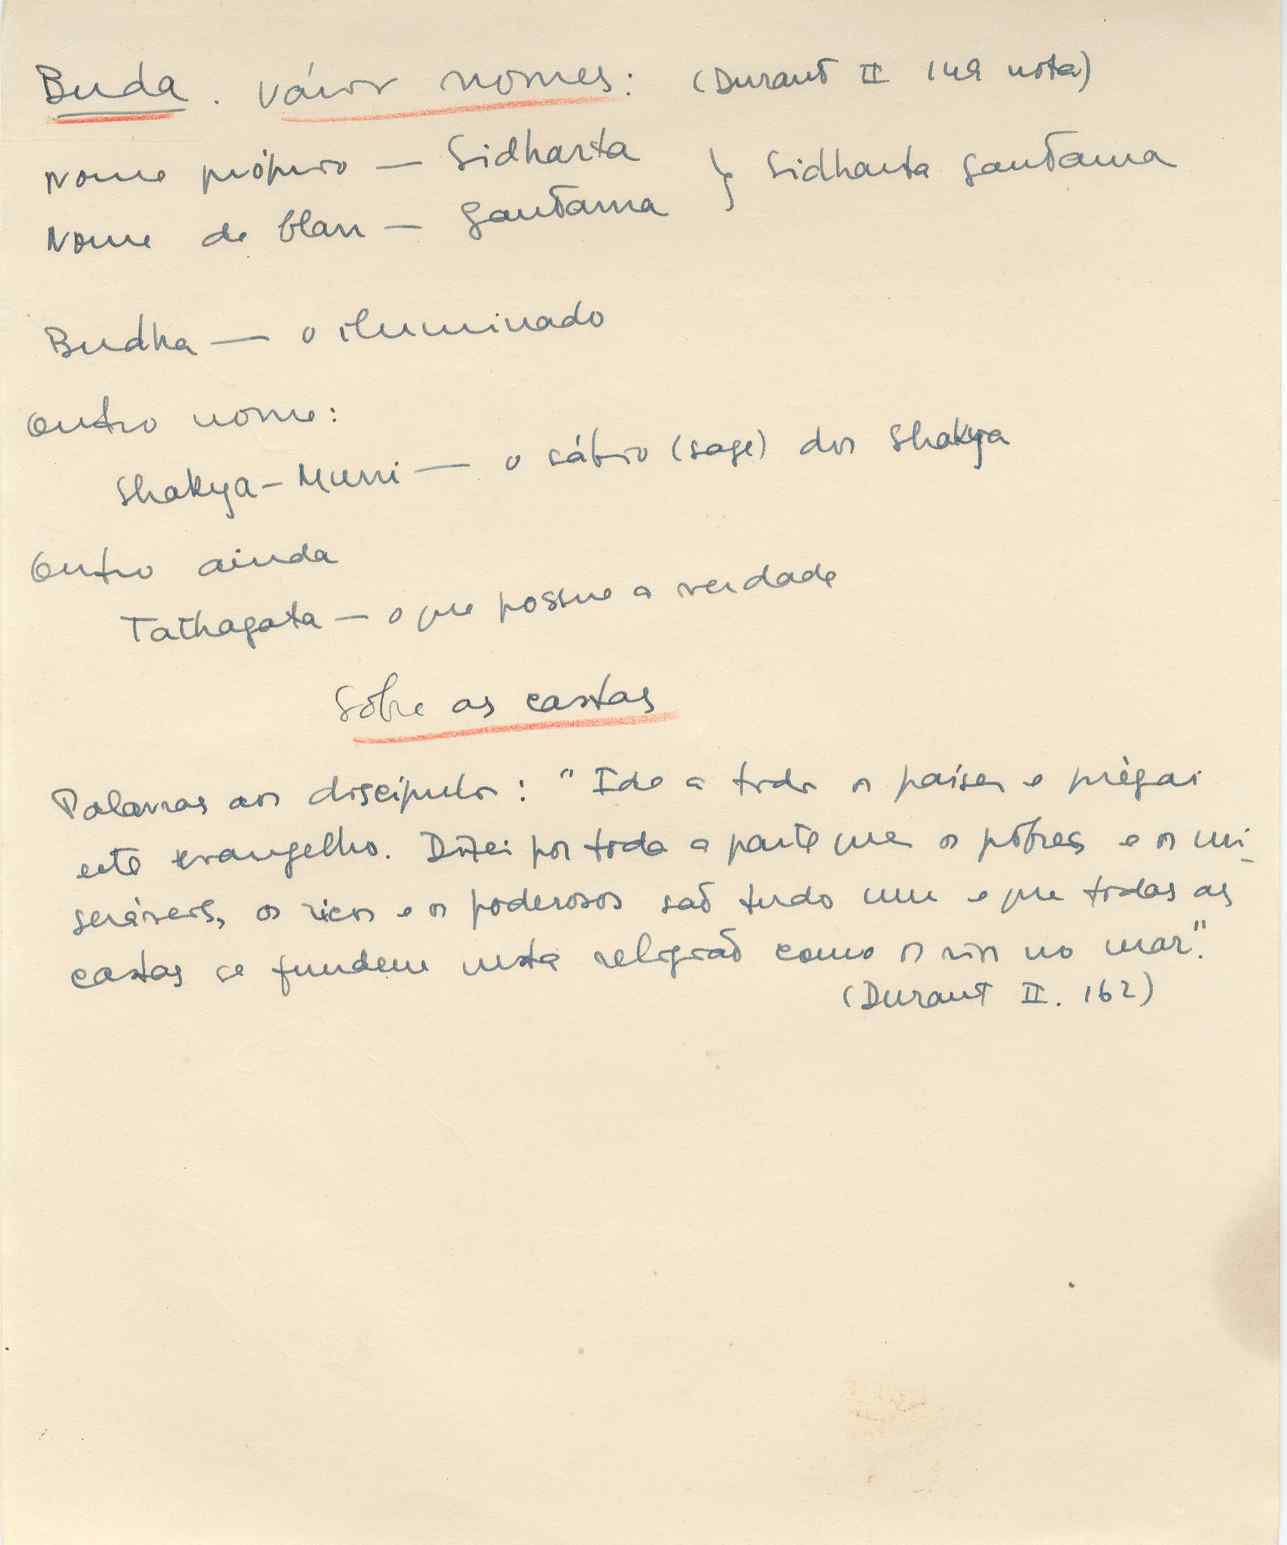 Buda. Vários nomes: (Durant II 149 nota)
Nome próprio — Sidharta } Sidharta Gautama
Nome de blan — Gautama
Budha — o iluminado
Outro nome:
Shakya-Muni — o sábio (sage) dos Shakya
Outro ainda
Tathagata — o que possue a verdade
Sôbre as castas
Palavras aos discípulos: "Ide a todos os países e prègai
este evangelho. Dizei por toda a parte que os pôbres e os mi-
seráveis, os ricos e os poderosos saõ tudo um e que todas as
castas se fundem nesta religiaõ como os rios no mar."
(Durant II. 162)